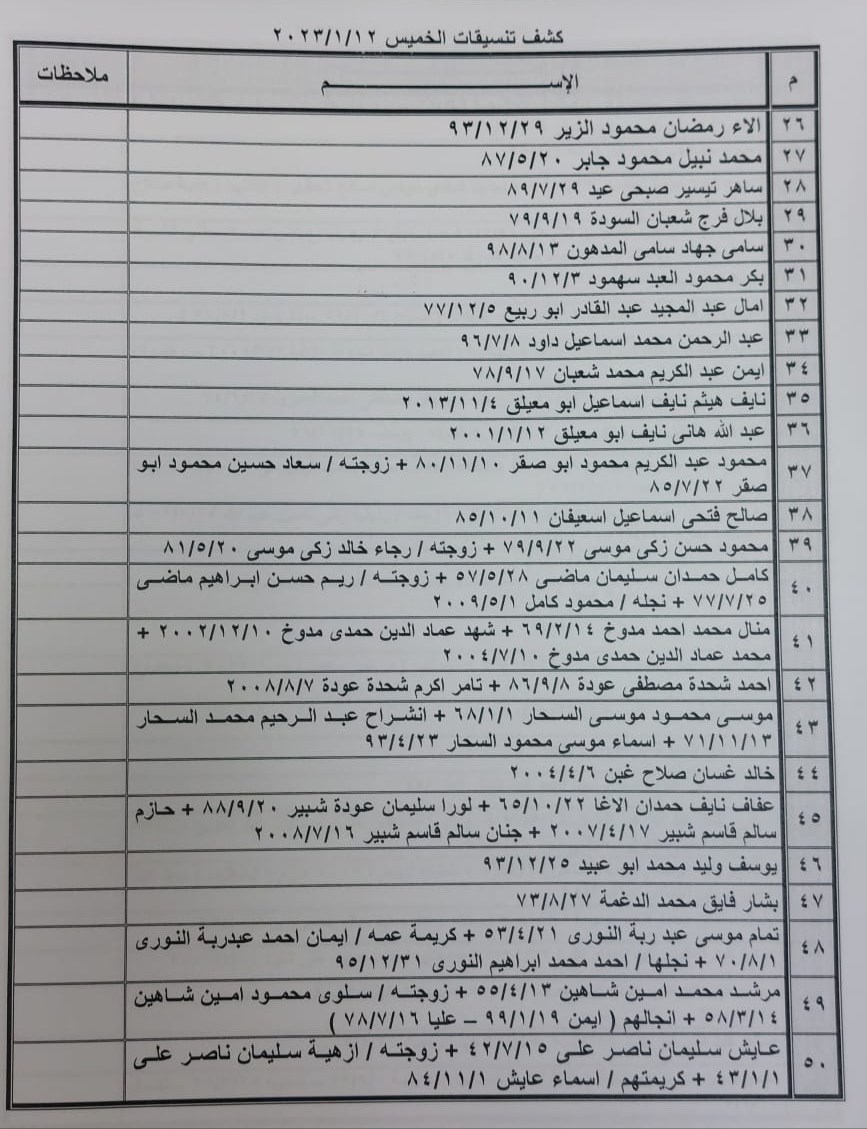 كشف تنسيقات الخميس ٢٠٢٣/١/١٢
م الإســـــــــم ملاحظات
٢٦ الاء رمضان محمود الزير ٩٣/١٢/٢٩
٢٧ محمد نبيل محمود جابر ٨٧/٥/٢٠
٢٨ ساهر تيسير صبحى عيد ٨٩/٧/٢٩
٢٩ بلال فرج شعبان السودة ٧٩/٩/١٩
٣٠ سامى جهاد سامى المدهون ٩٨/٨/١٣
٣١ بكر محمود العبد سهمود ٩٠/١٢/٣
٣٢ امال عبد المجيد عبد القادر ابو ربيع ٧٧/١٢/٥
٣٣ عبد الرحمن محمد اسماعيل داود ٩٦/٧/٨
٣٤ ايمن عبد الكريم محمد شعبان ٧٨/٩/١٧
٣٥ نايف هيثم نايف اسماعيل ابو معيلق ٢٠١٣/١١/٤
٣٦ عبد الله هانى نايف ابو معيلق ٢٠٠١/١/١٢
٣٧ محمود عبد الكريم محمود ابو صقر ٨٠/١١/١٠ + زوجته / سعاد حسين محمود ابو
صقر ٨٥/٧/٢٢
٣٨ صالح فتحى اسماعيل اسعيفان ٨٥/١٠/١١
٣٩ محمود حسن زكى موسى ٧٩/٩/٢٢ + زوجته / رجاء خالد زكى موسى ٨١/٥/٢٠
٤٠ كامل حمدان سليمان ماضى ٥٧/٥/٢٨ + زوجته / ريم حسن ابراهيم ماضى
٧٧/٧/٢٥ + نجله / محمود كامل ٢٠٠٩/٥/١
٤١ منال محمد احمد مدوخ ٦٩/٢/١٤ + شهد عماد الدين حمدى مدوخ ٢٠٠٢/١٢/١٠ +
محمد عماد الدين حمدى مدوخ ٢٠٠٤/٧/١٠
٤٢ احمد شحدة مصطفى عودة ٨٦/٩/٨ + تامر اكرم شحدة عودة ٢٠٠٨/٨/٧
٤٣ موسى محمود موسى السحار ٦٨/١/١ + انشراح عبد الرحيم محمد السحار
٧١/١١/١٣ + اسماء موسى محمود السحار ٩٣/٤/٢٣
٤٤ خالد غسان صلاح غبن ٢٠٠٤/٤/٦
٤٥ عفاف نايف حمدان الاغا ٦٥/١٠/٢٢ + لورا سليمان عودة شبير ٨٨/٩/٢٠ + حازم
سالم قاسم شبير ٢٠٠٧/٤/١٧ + جنان سالم قاسم شبير ٢٠٠٨/٧/١٦
٤٦ يوسف وليد محمد ابو عبيد ٩٣/١٢/٢٥
٤٧ بشار فايق محمد الدغمة ٧٣/٨/٢٧
٤٨ تمام موسى عبد ربة النورى ٥٣/٤/٢١ + كريمة عمه / ايمان احمد عبدربة النورى
٧٠/٨/١ + نجلها / احمد محمد ابراهيم النورى ٩٥/١٢/٣١
٤٩ مرشد محمد امين شاهين ٥٥/٤/١٣ + زوجته / سلوى محمود امين شاهين
٥٨/٣/١٤ + انجالهم ( ايمن ٩٩/١/١٩ – عليا ٧٨/٧/١٦ )
٥٠ عايش سليمان ناصر على ٤٢/٧/١٥ + زوجته / ازهية سليمان ناصر على
٤٣/١/١ + كريمتهم / اسماء عايش ٨٤/١١/١